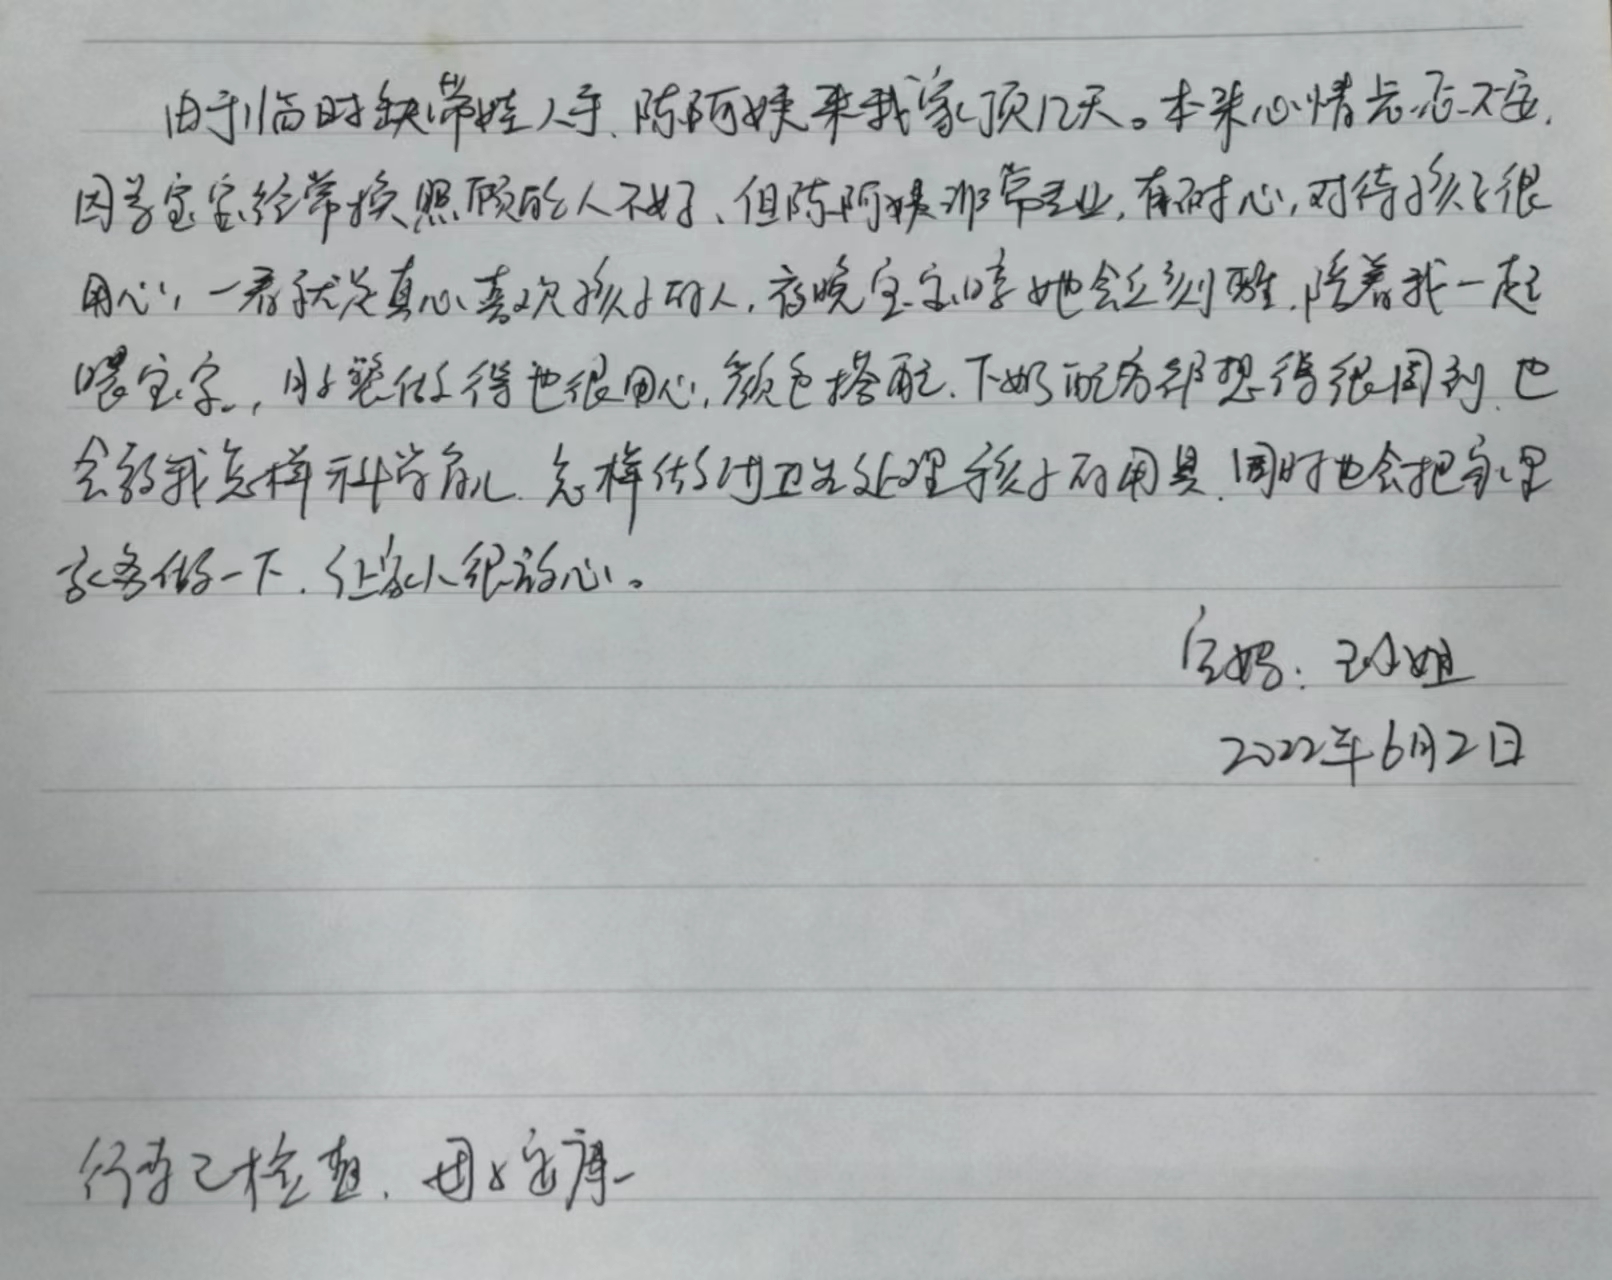 由于临时缺带娃人手、陈阿姨来我家顶几天。本来心情忐忑不安,
因为宝宝经常换照顾的人不好、但陈阿姨非常专业,有耐心,对待孩子很
用心,一看就是真心喜欢孩子的人,夜晚宝宝哼她会立刻醒,陪着我一起
喂宝宝,月子餐做得也很用心,颜色搭配、下奶配方都想得很周到、也
会教我怎样科学育儿、怎样做卫生处理孩子的用具、同时也会把家里
家务做一下、让家人很放心。
宝妈:王小姐
2022年6月2日
行李已检查、母婴安康